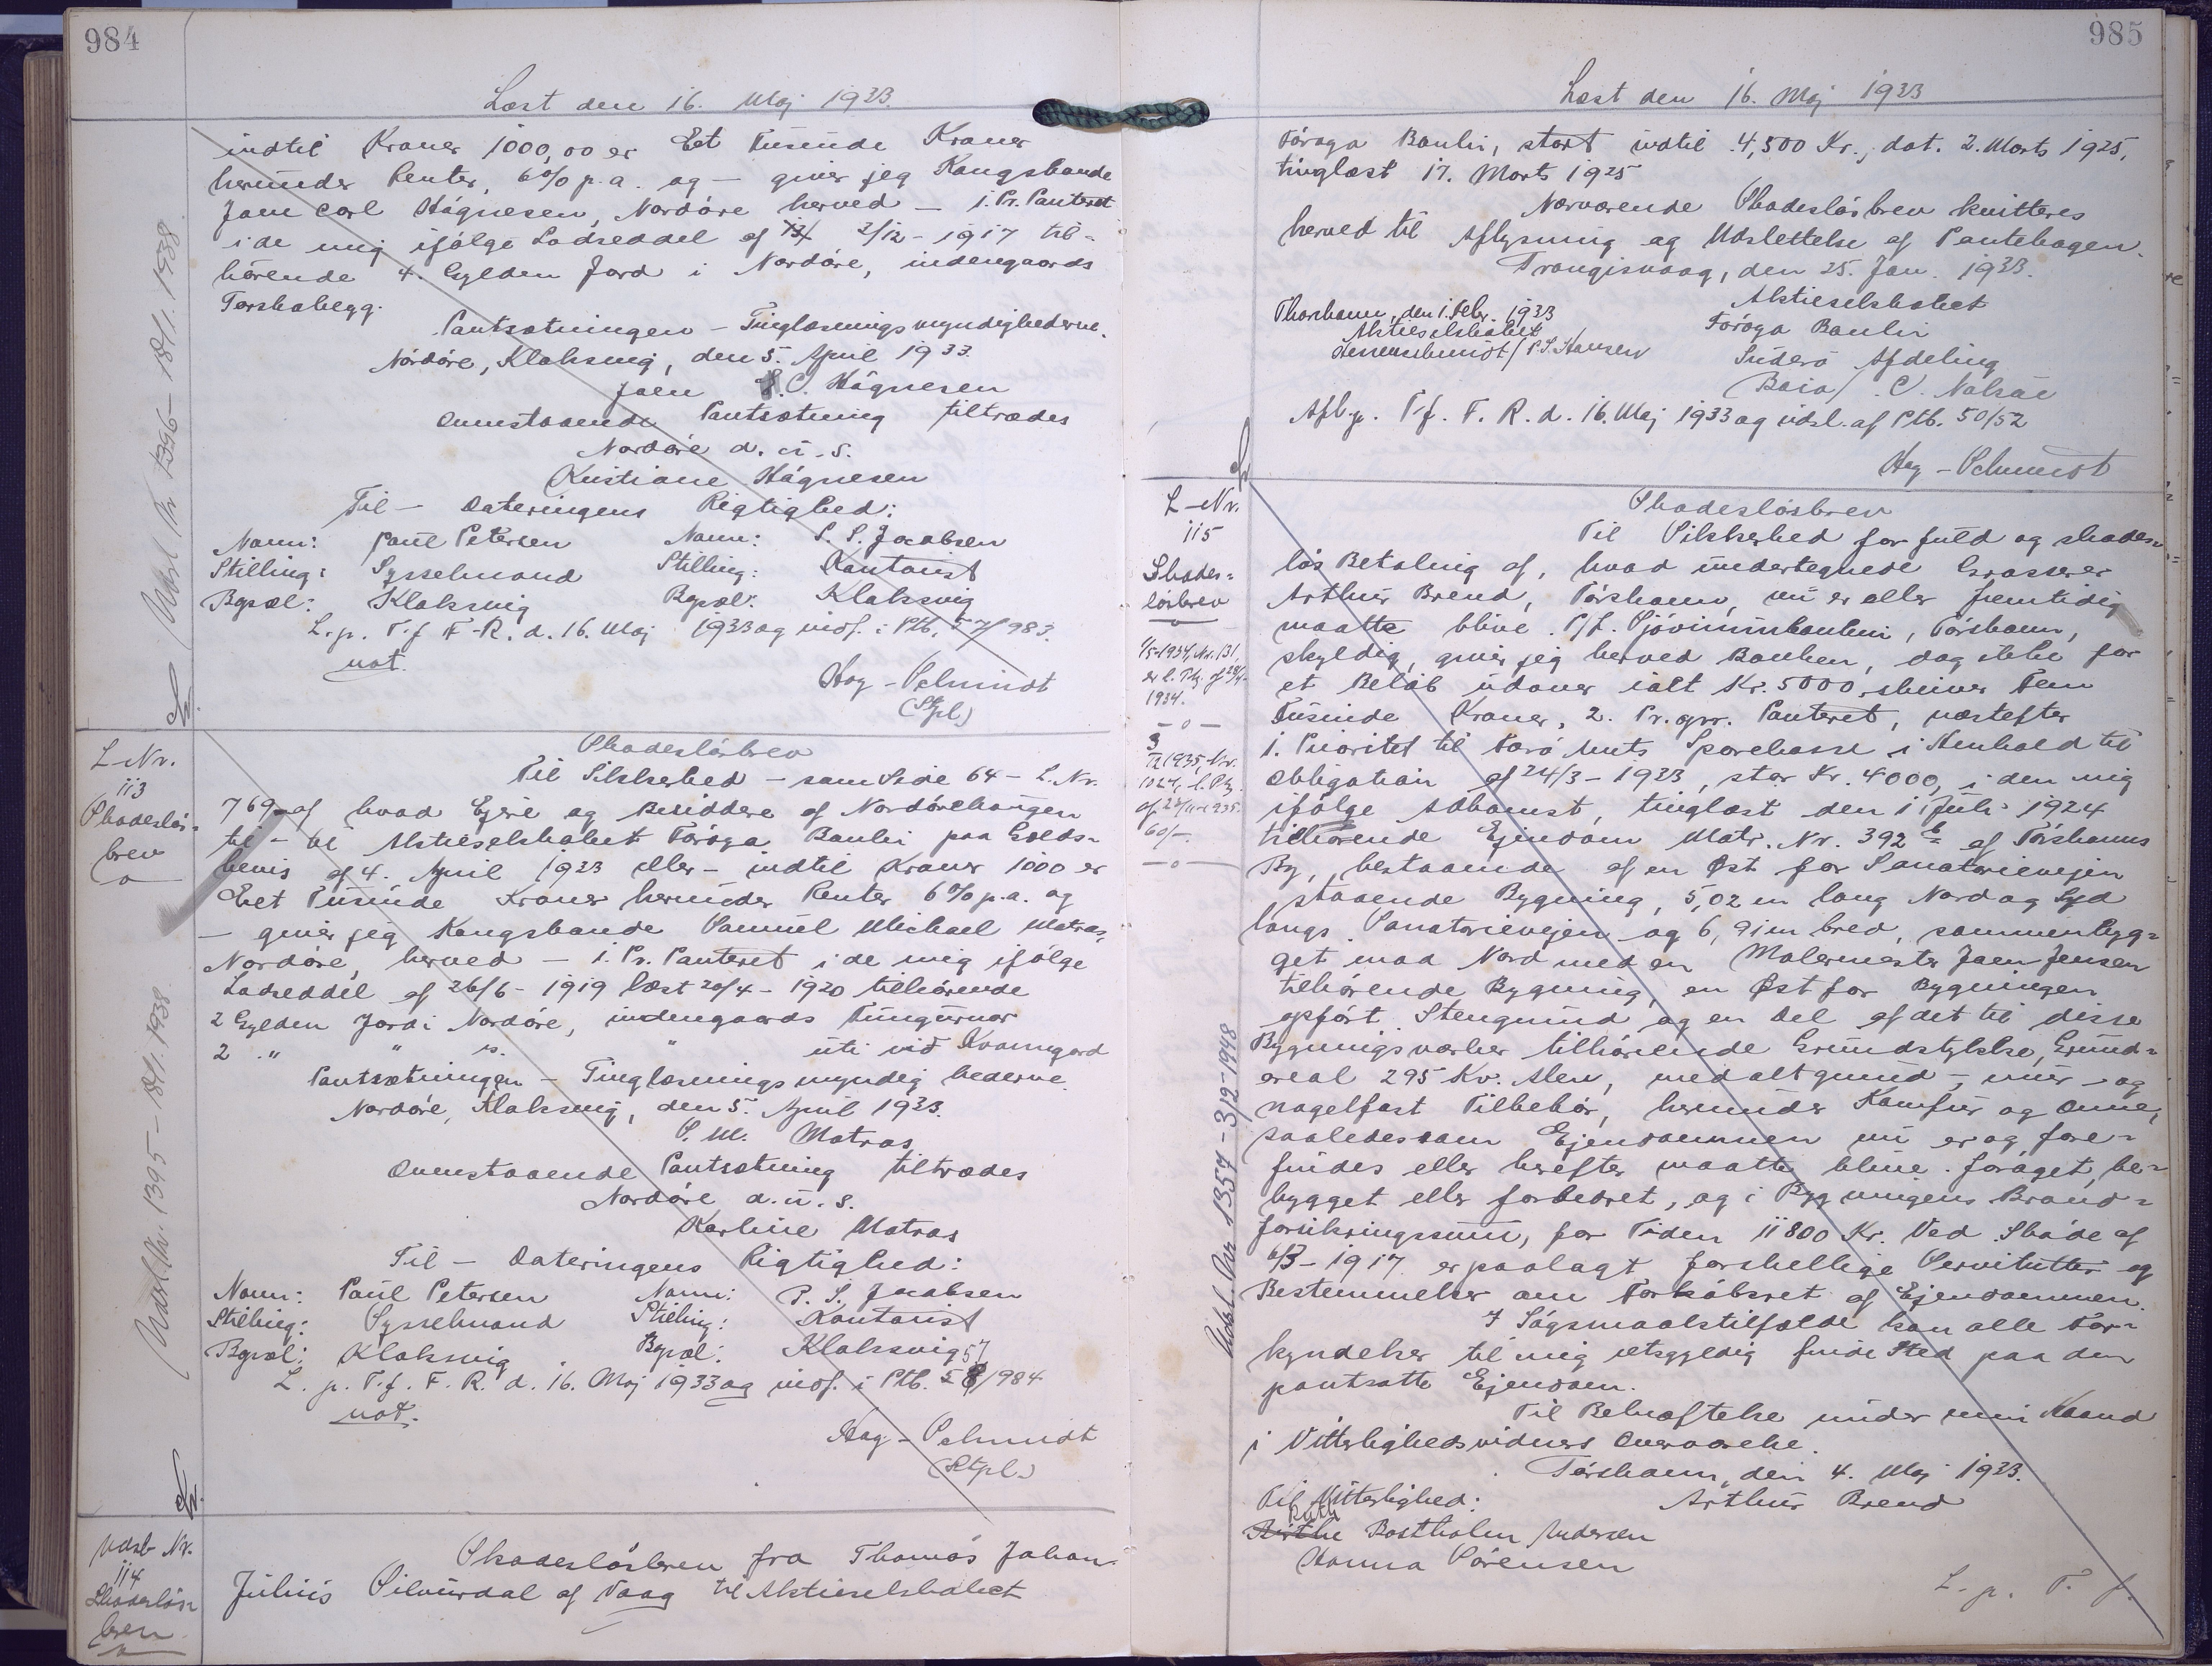 984
Læst den 16. Maj 1933.
indtil Kroner 1000,00 er Eet Tusinde Kroner
herunder Renter, 6% p.a. og – giver jeg Kongsbonde
Joen Carl Högnesen, Nordöre herved – 1. Pr. Panteret
i de mig ifölge Lodseddel af 2/12 – 1917 til-
hörende 4. Gylden Jord i Nordöre, indengaards
Pantsætningen – Tinglæsningsmyndighederne.
Nordöre, Klaksvig, den 5. April 1933.
Joen C. Högnesen
Ovenstaaende Pantsætning tiltrædes
Nordöre d. u. s.
Kristiane Högnesen
Til – Dateringens Rigtighed:
Navn: Poul Petersen Navn: P. S. Jacobsen
Stilling: Sysselmand Stilling: Kontorist
Bopæl: Klaksvig Bopæl: Klaksvig
L. p. T. f. F. R. d. 16. Maj 1933 og indf. i Ptb. 57/983.
not.
Hag – Schmidt
(Stpl.)
Udsl. Nr 1396 – 18/1. 1938
L. Nr.
113
Skadeslös-
brev
Skadeslösbrev
Til Sikkerhed – som Side 64 – L. Nr.
769 – af hvad Ejere og Besiddere af Nordörehaugen
til – til Aktieselskabet Föroya Banki paa Gælds-
bevis af 4. April 1933 eller – indtil Kroner 1000 er
Eet Tusinde Kroner herunder Renter 6% p.a. og
– giver jeg Kongsbonde Samuel Michael Matras,
Nordöre, herved – 1. Pr. Panteret i de mig ifölge
Lodseddel af 26/6 – 1919 læst 20/4 – 1920 tilhörende
2 Gylden Jord i Nordöre, indengaards
2 " " " uti við Kvanngard
Pantsætningen – Tinglæsningsmyndighederne.
Nordöre, Klaksvig, den 5. April 1933.
S. M. Matras
Ovenstaaende Pantsætning tiltrædes
Nordöre d. u. s.
Karline Matras
Til – Dateringens Rigtighed:
Navn: Poul Petersen Navn: P. S. Jacobsen
Stilling: Sysselmand Stilling: Kontorist
Bopæl: Klaksvig Bopæl: Klaksvig
L. p. T. f. F. R. d. 16. Maj 1933 og indf. i Ptb. 57/984
not.
Hag – Schmidt
(Stpl.)
Udsl. Nr. 1395 – 18/1. 1938.
Udsl. Nr.
114
Skadeslös-
brev
Skadeslösbrev fra Thomas Johan
Julius af Vaag til Aktieselskabet
985
Læst den 16. Maj 1933
Föroya Banki, stort indtil 4,500 Kr., dat. 2. Marts 1925,
tinglæst 17. Marts 1925
Nærværende Skadeslösbrev kvitteres
herved til Aflysning og Udslettelse af Pantebogen.
Trangisvaag, den 25. Jan. 1933.
Thorshavn, den 1. Febr. 1933 Aktieselskabet
Aktieselskabet Föroya Banki
P. S. Hansen Suderö Afdeling
C. Nolsöe
Afl. p. T. f. F. R. d. 16. Maj 1933 og udsl. af Ptb. 50/52
Hag – Schmidt
L – Nr.
115
Skades-
lösbrev
1/5-1934, Nr. 131,
1934.
– o –
60/–
– o –
Skadeslösbrev
Til Sikkerhed for fuld og skades-
lös Betaling af, hvad undertegnede Grosserer
Arthur Brend, Tórshavn, nu er eller fremtidig
maatte blive P/f. Sjóvinnubankin, Tórshavn,
skyldig, giver jeg herved Banken, dog ikke for
et Belöb udover ialt Kr. 5000, skriver Fem
Tusinde Kroner, 2. Pr. opr. Panteret, næstefter
1. Prioritet til Færö Amts Sparekasse i Henhold til
Obligation af 24/3 – 1933, stor Kr. 4000, i den mig
ifölge Adkomst, tinglæst den 1 Juli 1924
tilhörende Ejendom Matr. Nr. 392 af Tórshavns
By, bestaaende af en Öst for Sanatorievejen
staaende Bygning, 5,02 m lang Nord og Syd
langs Sanatorievejen og 6,91 m bred, sammenbyg-
get mod Nord med en Malermester Joen Jensen
tilhörende Bygning, en Öst for Bygningen
opfört Stengrund og en Del af det til disse
Bygningsværker tilhörende Grundstykke, Grund-
areal 295 Kv. Alen, med alt grund-, mur- og
nagelfast Tilbehör, herunder Komfur og Ovne,
saaledes som Ejendommen nu er og fore-
findes eller herefter maatte blive foröget, be-
bygget eller forbedret, og i Bygningens Brand-
forsikringssum, for Tiden 11800 Kr. Ved Sköde af
6/3 – 1917 er paalagt forskellige Servitutter og
Bestemmelser om Forköbsret af Ejendommen.
I Sögsmaalstilfælde kan alle For-
kyndelser til mig retsgyldig finde Sted paa den
pantsatte Ejendom.
Til Bekræftelse under min Haand
i Vitterlighedsvidners Overværelse.
Tórshavn, den 4. Maj 1933.
Til Vitterlighed: Arthur Brend
Ruth
Birthe Bostholm Andersen
Hanna Sörensen
L. p. T. f.
Udsl. Nr 1354 – 3/12 – 1948